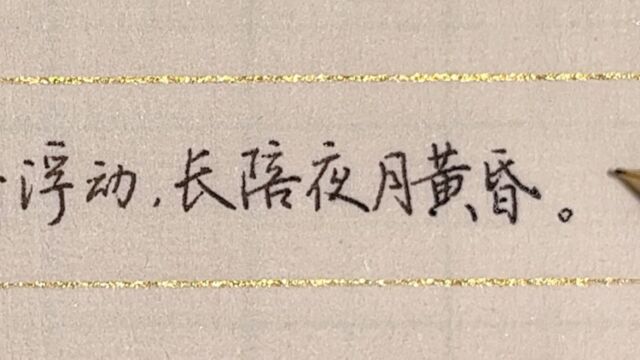 浮动，长陪夜月黄昏。